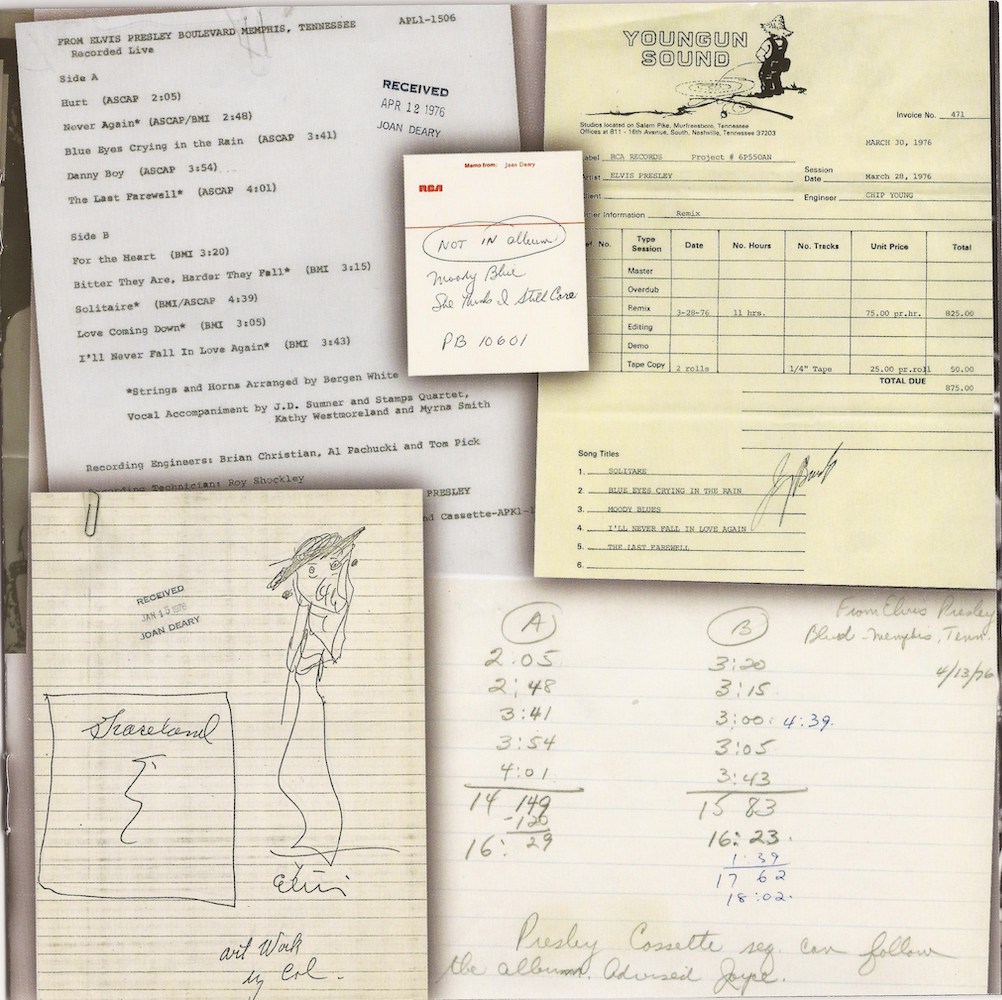 FROM ELVIS PRESLEY BOULEVARD MEMPHIS, TENNESSEE APL1-1506
Recorded Live
Side A
Hurt (ASCAP 2:05)
Never Again* (ASCAP/BMI 2:48)
Blue Eyes Crying in the Rain (ASCAP 3:41)
Danny Boy (ASCAP 3:54)
The Last Farewell* (ASCAP 4:01)
Side B
For the Heart (BMI 3:20)
Bitter They Are, Harder They Fall* (BMI 3:15)
Solitaire* (BMI/ASCAP 4:39)
Love Coming Down* (BMI 3:05)
I'll Never Fall In Love Again* (BMI 3:43)
*Strings and Horns Arranged by Bergen White
Vocal Accompaniment by J.D. Sumner and Stamps Quartet,
Kathy Westmoreland and Myrna Smith
Recording Engineers: Brian Christian, Al Pachucki and Tom Pick
Technician: Roy Shockley
PRESLEY
Cassette-APK1-1
RECEIVED
APR 12 1976
JOAN DEARY
Memo from: Joan Deary
RCA
NOT IN album
Moody Blue
She Thinks I Still Care
PB 10601
YOUNGUN
SOUND
Studios located on Salem Pike, Murfreesboro, Tennessee
Offices at 811 - 16th Avenue, South, Nashville, Tennessee 37203
Invoice No. 471
MARCH 30, 1976
RCA RECORDS Project # 6P550AN
ELVIS PRESLEY
Session
Date March 28, 1976
Engineer CHIP YOUNG
Information Remix
No. Type Session Date No. Hours No. Tracks Unit Price Total
Master
Overdub
Remix 3-28-76 11 hrs. 75.00 pr.hr. 825.00
Editing
Demo
Tape Copy 2 rolls 1/4" Tape 25.00 pr.roll 50.00
TOTAL DUE 875.00
Song Titles
1. SOLITARE
2. BLUE EYES CRYING IN THE RAIN
3. MOODY BLUES
4. I'LL NEVER FALL IN LOVE AGAIN
5. THE LAST FAREWELL
6.
RECEIVED
JAN 15 1976
JOAN DEARY
Graceland
Elvis
art Work
by Col.
From Elvis Presley
Blvd - Memphis, Tenn.
4/13/76
A B
2:05 3:20
2:48 3:15
3:41 3:00: 4:39.
3:54 3:05
4:01 3:43
14 149 15 83
-120
16: 29 16:23.
1:39
17 62
18:02.
Presley Cassette seq. can follow
the album. Advised Joyce.